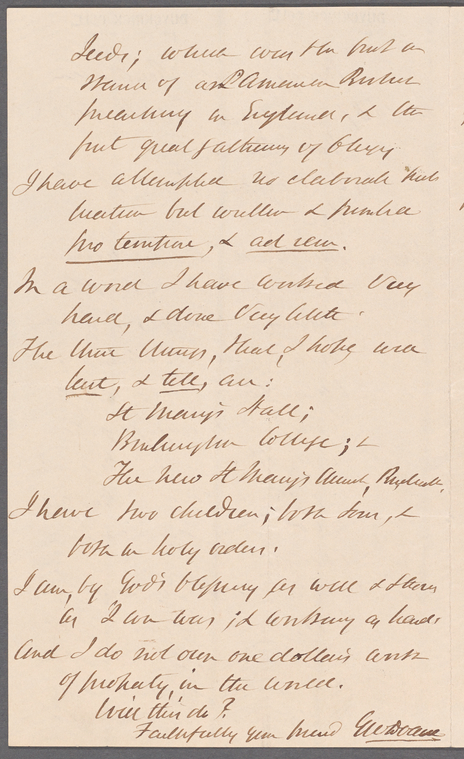 Leeds; which was the first in
stance of an American Bishop
preaching in England, & the
first great gathering of Clergy.
I have attempted no elaborate pub
lication but written & printed
pro tempore, & ad rem.
In a word I have worked very
hard, & done very little.
The three things, that, I hope, will
last, & tell, are:
St Mary's Hall;
Burlington College; &
The new St Mary's Church, Burlington.
I have two children; both sons, &
both in holy orders.
I am, by God's blessing as well & strong
as I ever was; & working as hard.
And I do not own one dollar's worth
of property, in the world.
Will this do?
Faithfully your friend GWDoane